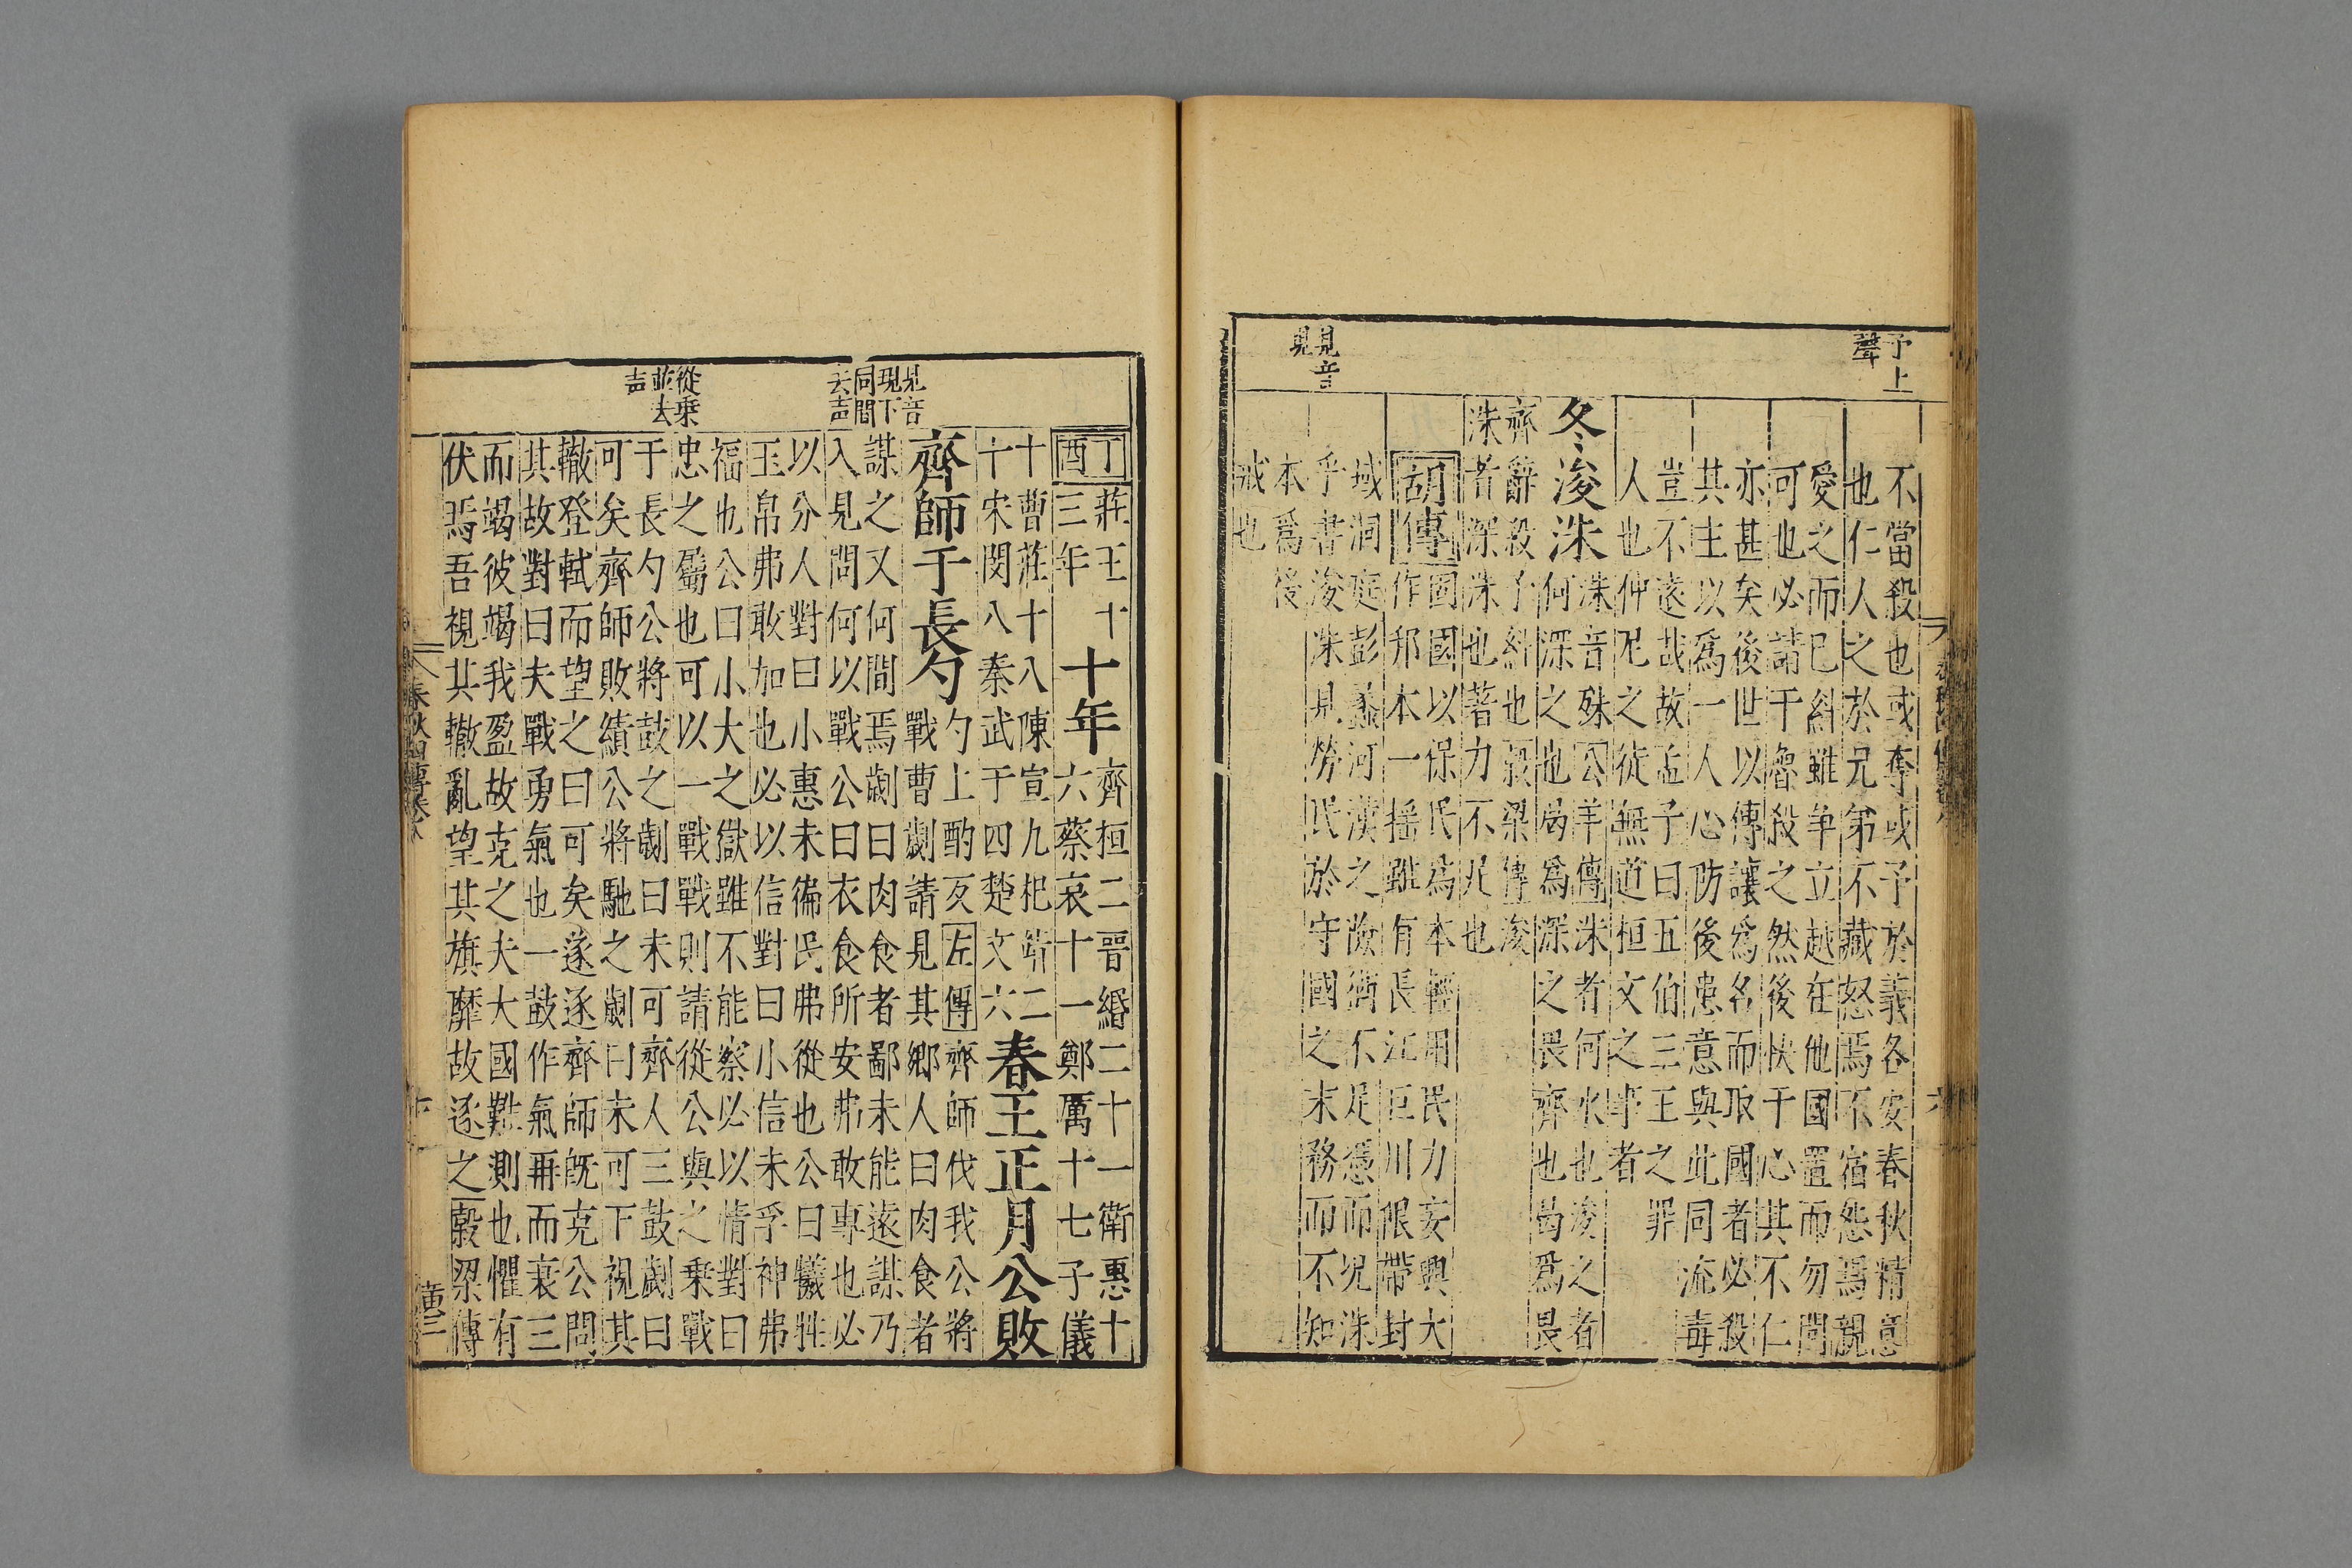 予上
聲
不當殺也或奪或予於義各安春秋精意
也仁人之於兄弟不藏怒焉不宿怨焉親
愛之而已糾雖争立越在他國置而勿問
可也必請于魯殺之然後快于心其不仁
亦甚矣後世以傳讓爲名而取國者必殺
其主以爲一人心防後患意與此同流毒
豈不遠哉故孟子曰五伯三王之罪
人也仲尼之徒無道桓文之事者
冬浚洙
洙音殊公羊傳洙者何水也浚之者
何深之也曷爲深之畏齊也曷爲畏
齊辭殺子糾也穀梁傳浚
洙者深洙也著力不足也
胡傳
固國以保民爲本輕用民力妄興大
作邦本一摇雖有長江巨川限帶封
見音
見
域洞庭彭蠡河漢之險猶不足憑而况洙
乎書浚洙見勞民於守國之末務而不知
本爲後
戒也
丁酉
莊王十
三年
十年
齊桓二晉緡二十一衛惠十
六蔡哀十一鄭厲十七子儀
十曹莊十八陳宣九杞靖二
十宋閔八秦武于四楚文六
春王正月公敗
見音
現下
同間
去声
齊師于長勺
勺上酌反左傳齊師伐我公將
戰曹劌請見其鄉人曰肉食者
謀之又何間焉劌曰肉食者鄙未能遠謀乃
入見問何以戰公曰衣食所安弗敢專也必
以分人對曰小惠未徧民弗從也公曰犧牲
玉帛弗敢加也必以信對曰小信未孚神弗
福也公曰小大之獄雖不能察必以情對曰
從乗
並去
声
忠之屬也可以一戰戰則請從公與之乗戰
于長勺公將鼓之劌曰未可齊人三鼓劌曰
可矣齊師敗績公將馳之劌曰未可下視其
轍登軾而望之曰可矣遂逐齊師既克公問
其故對曰夫戰勇氣也一鼓作氣再而衰三
而竭彼竭我盈故克之夫大國難測也懼有
伏焉吾視其轍亂望其旗靡故逐之穀梁傳
春秋四傳卷八